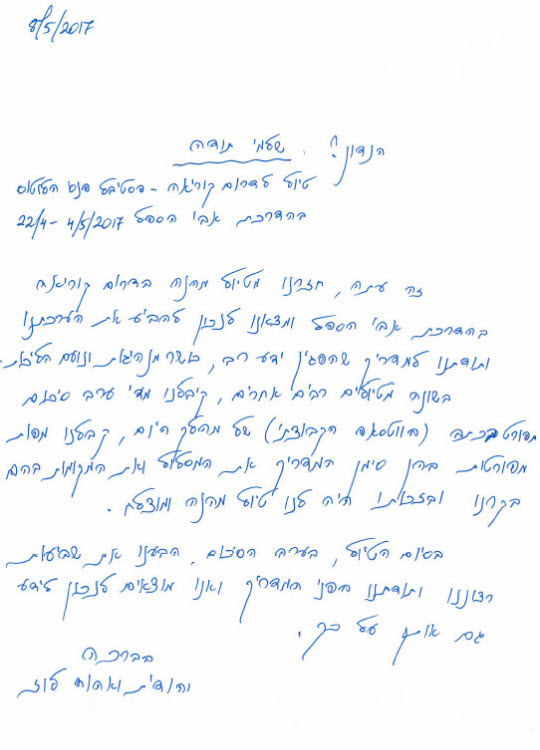 8/5/2017
הנדון: שלמי תודה
טיול לדרום קוריאה - פסטיבל פנס הלוטוס
22/4 - 4/5/2017 בהדרכת אבי הספל
זה עתה, חזרנו מטיול מהנה בדרום קוריאה
בהדרכת אבי הספל ומצאנו לנכון להביע את הערכתנו
ותודתנו למדריך שהפגין ידע רב, כושר מנהיגות ונועם הליכות.
בשונה מטיולים רבים אחרים, קיבלנו מדי ערב סיכום
מפורט בכתב (בווטסאפ הקבוצתי) של מהלך היום, קבלנו מפות
מפורטות בהן סימן המדריך את המסלול ואת המקומות בהם
בקרנו ובזכותו היה לנו טיול מהנה ומוצלח.
בסיום הטיול, בערב הסיכום. הבענו את שביעות
רצוננו ותודתנו בפני המדריך ואנו מוצאים לנכון ליידע
גם אותך על כך.
בברכה
יהודית ואהוד לוז